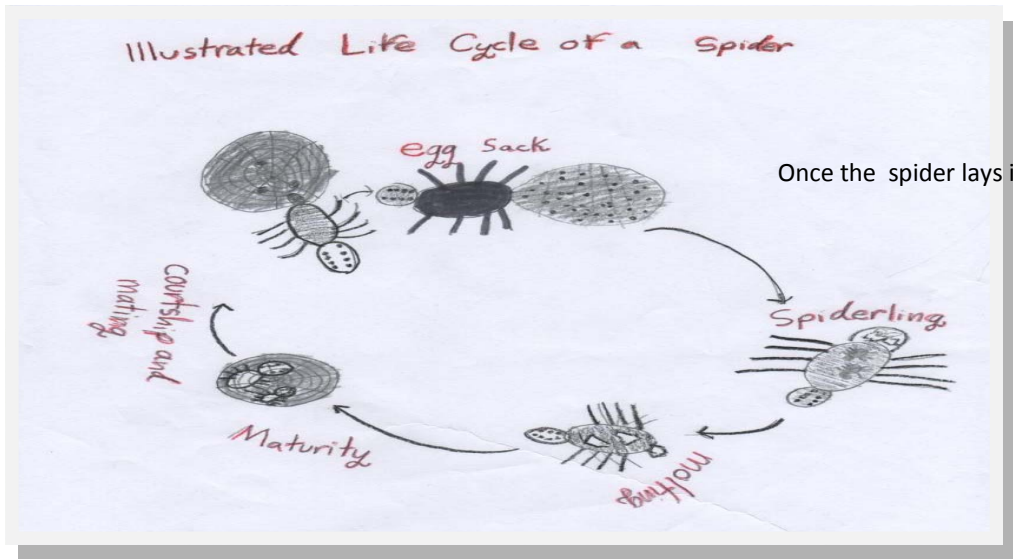 Illustrated Life Cycle of a Spider
egg Sack
Once the spider lays i
Spiderling
molting
Maturity
Courtship and
mating